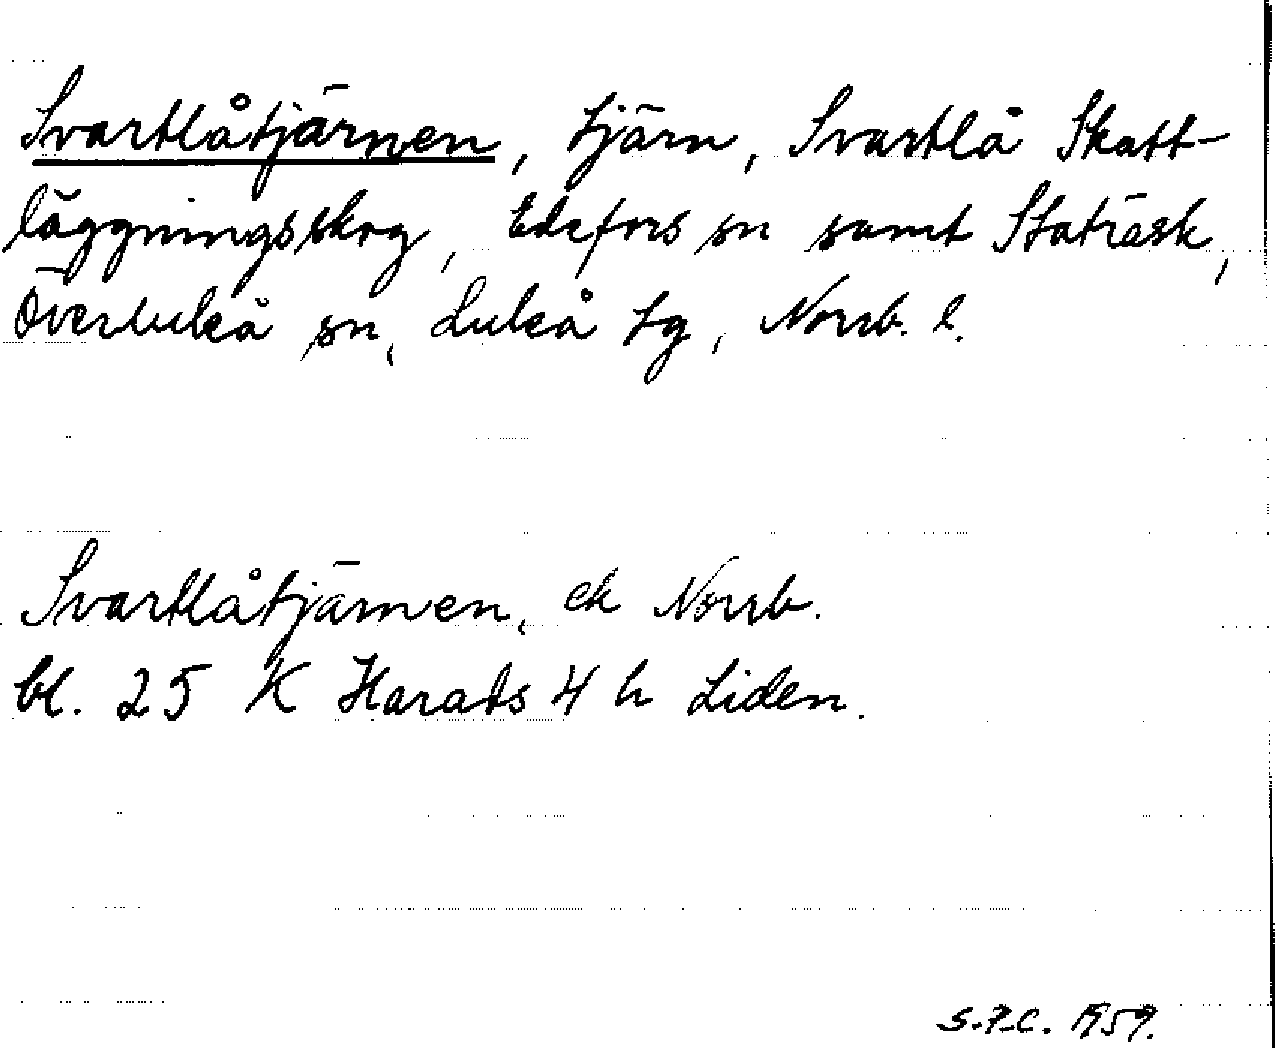 Svartlåtjärnen, tjärn, Svartlå Skatt-
läggningsskog, Edefors sn samt Staträsk,
Överluleå sn, Luleå tg, Norrb. l.
Svartlåtjärnen, ek Norrb.
bl. 25 K Harads 4 h Liden.
1959.